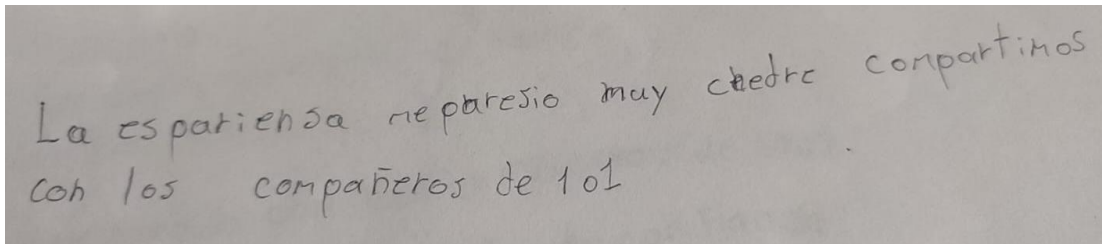 La espariensa me paresio muy chedre compartimos
con los compañeros de 101